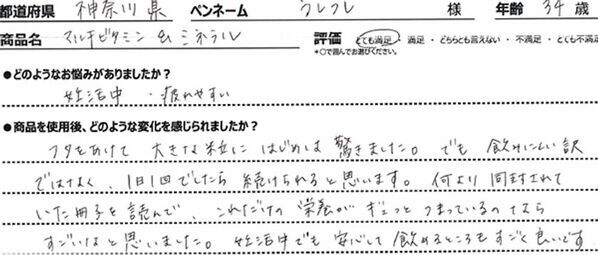 都道府県 神奈川県 ペンネーム うしうし 様 年齢 34 歳
商品名 マルチビタミン & ミネラル 評価 とても満足 ・ 満足 ・ どちらとも言えない ・ 不満足 ・ とても不満
*○で囲んでお選びください。
●どのようなお悩みがありましたか?
妊活中 ・疲れやすい
●商品を使用後、どのような変化を感じられましたか?
フタをあけて 大きな粒に はじめは 驚きました。でも 飲みにくい訳
ではなく、1日1回でしたら 続けられると思います。何より 同封されて
いた冊子を読んで、これだけの 栄養が ギュっと つまっているのなら
すごいなと思いました。妊活中でも 安心して 飲めるところも すごく良いです